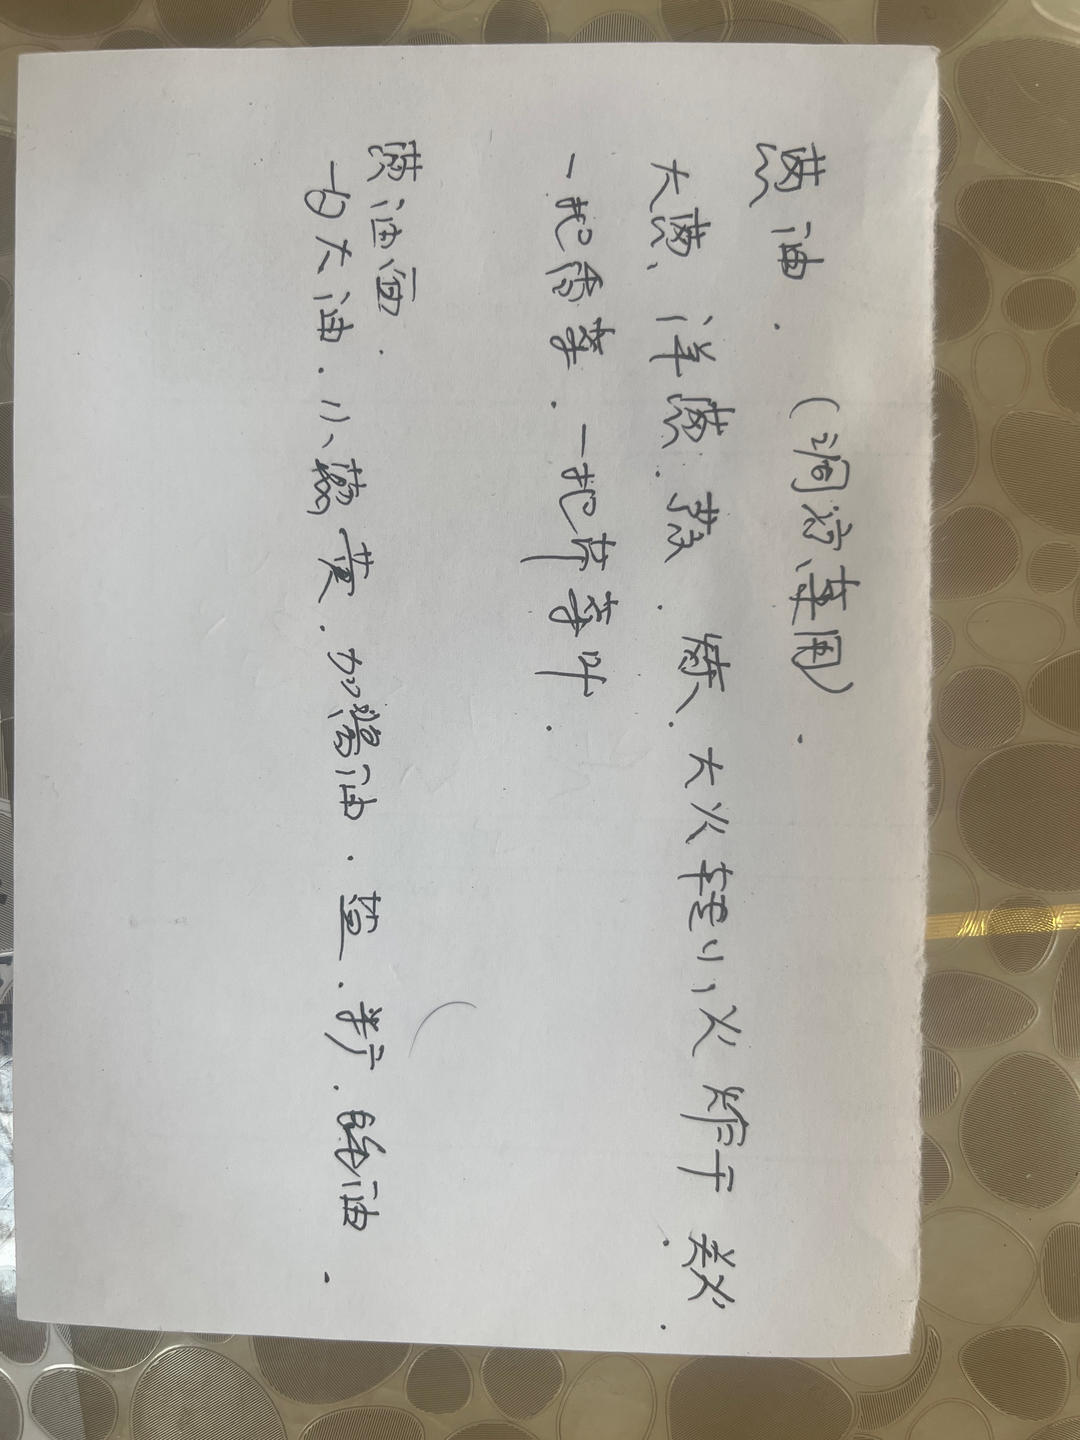 葱油.（调凉菜用）.
大葱、洋葱.蒜.炼.大火转小火炸干.关火.
一把香菜.一把芹菜叶.
葱油面.
一勺大油.小葱黄.加酱油.盐.耗油.